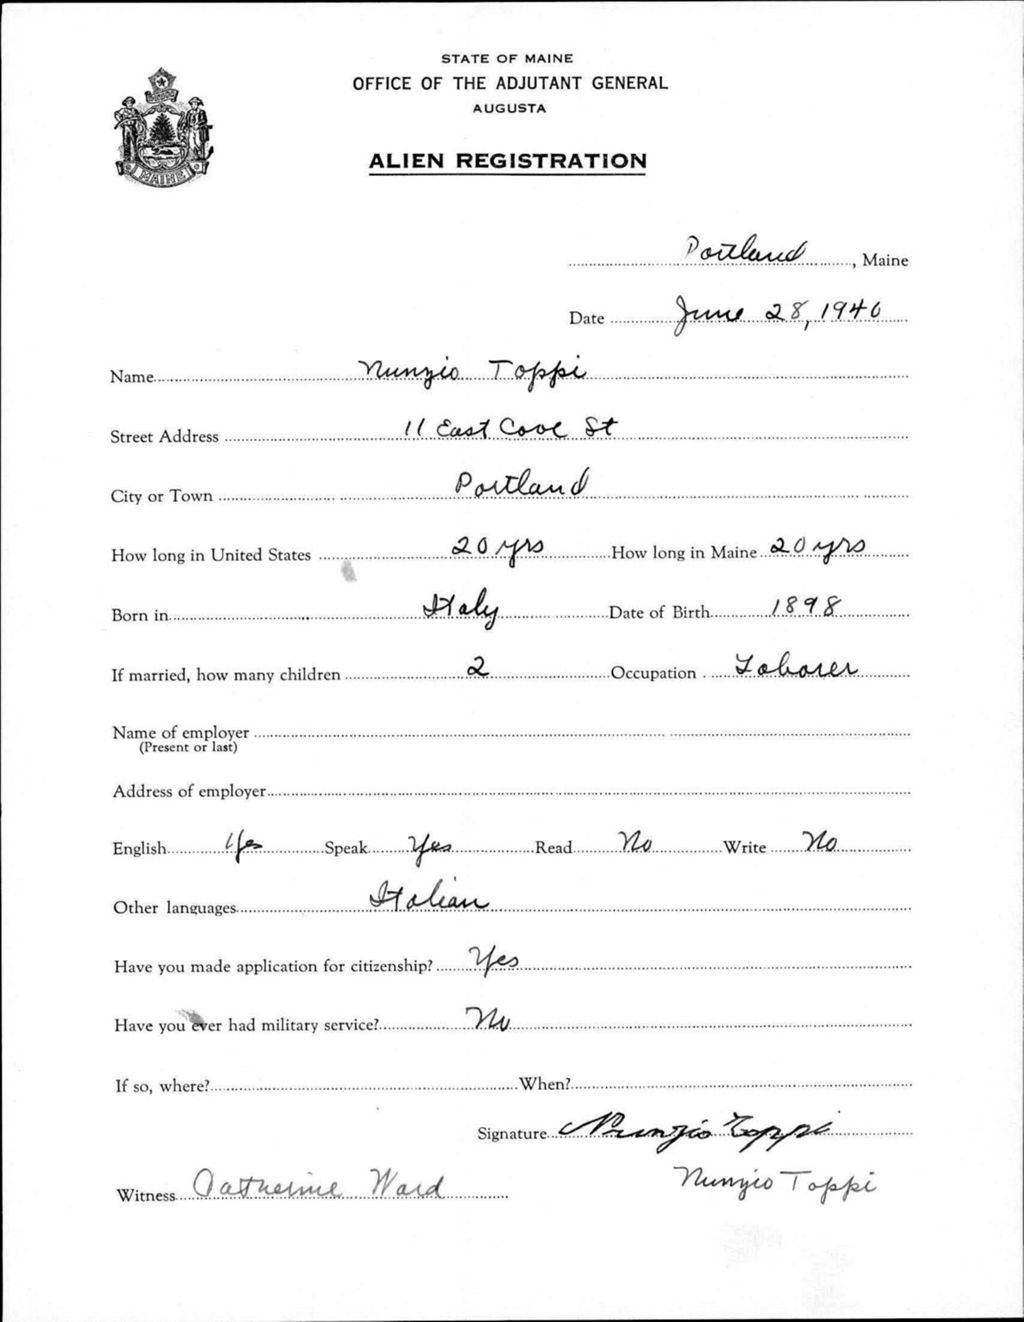 STATE OF MAINE
OFFICE OF THE ADJUTANT GENERAL
AUGUSTA
ALIEN REGISTRATION
MAINE
Portland, Maine
Date June 28, 1940
Name Nunzio Toppi
Street Address 11 East Cove St
City or Town Portland
How long in United States 20 yrs How long in Maine 20 yrs
Born in Italy Date of Birth 1898
If married, how many children 2 Occupation Laborer
Name of employer
(Present or last)
Address of employer
English Yes Speak Yes Read No Write No
Other languages Italian
Have you made application for citizenship? Yes
Have you ever had military service? No
If so, where? When?
Signature Nunzio Toppi
Witness Catherine Ward Nunzio Toppi